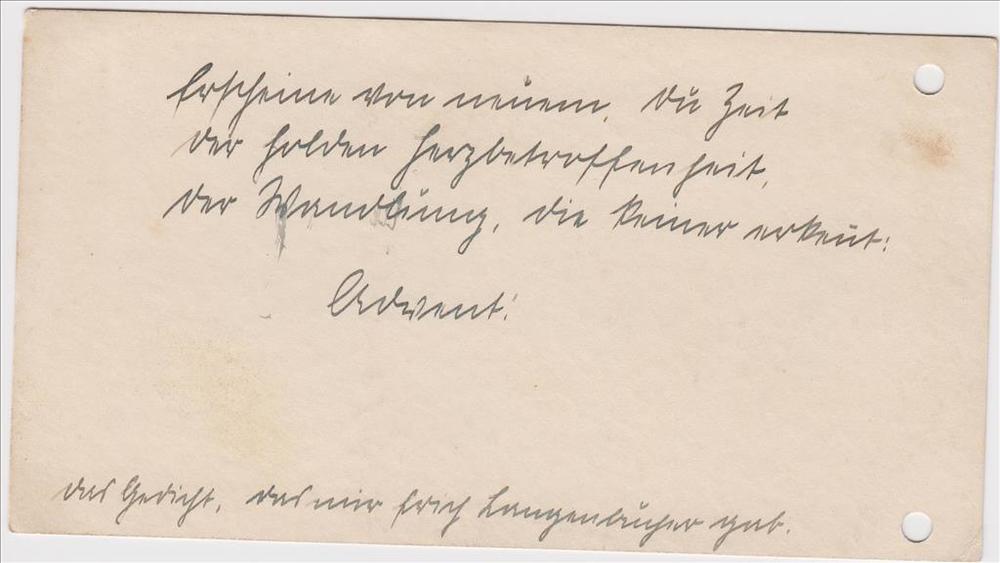 Erscheine von neuem, du Zeit
der holden Herzbetroffenheit,
der Wandlung, die keiner erkeñt:
Advent!
das Gedicht, das mir Erich Langenbucher gab.